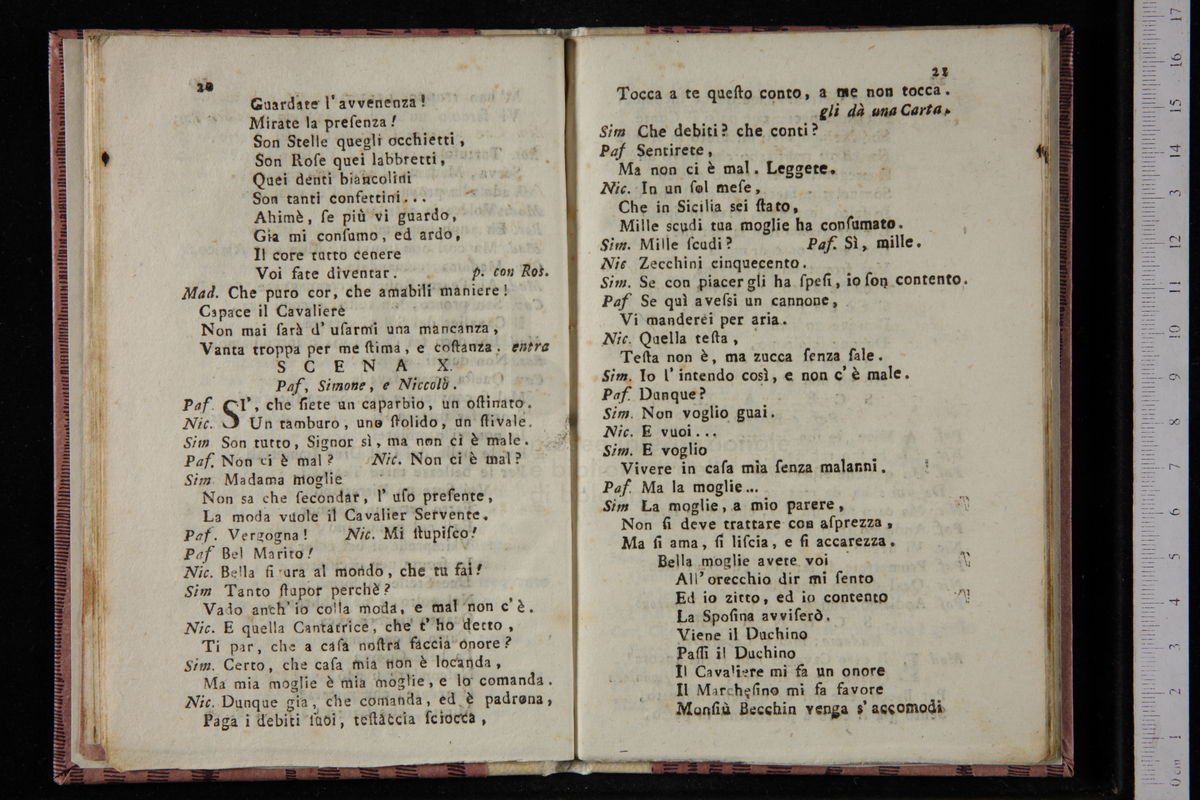 20
Guardate l'avvenenza!
Mirate la preſenza!
Son Stelle quegli occhietti,
Son Roſe quei labbretti,
Quei denti biancolini
Son tanti confettini...
Ahimè, ſe più vi guardo,
Gia mi conſumo, ed ardo,
Il core tutto cenere
Voi fate diventar. p. con Ros.
Mad. Che puro cor, che amabili maniere!
Capace il Cavaliere
Non mai ſarà d'uſarmi una mancanza,
Vanta troppa per me ſtima, e coſtanza. entra
SCENA X.
Paſ, Simone, e Niccolò.
Paſ. SI', che ſiete un caparbio, un oſtinato.
Nic. Un tamburo, uno ſtolido, un ſtivale.
Sim Son tutto, Signor sì, ma non ci è male.
Paſ. Non ci è mal? Nic. Non ci è mal?
Sim Madama moglie
Non sa che ſecondar, l'uſo preſente,
La moda vuole il Cavalier Servente.
Paſ. Vergogna! Nic. Mi ſtupiſco!
Paſ Bel Marito!
Nic. Bella fi ura al mondo, che tu fai!
Sim Tanto ſtupor perchè?
Vado anch'io colla moda, e mal non c'è.
Nic. E quella Cantatrice, che t'ho detto,
Ti par, che a caſa noſtra faccia onore?
Sim. Certo, che caſa mia non è locanda,
Ma mia moglie è mia moglie, e lo comanda.
Nic. Dunque gia, che comanda, ed è padrona,
Paga i debiti ſuoi, teſtaccia ſciocca,
21
Tocca a te queſto conto, a me non tocca.
gli dà una Carta.
Sim Che debiti? che conti?
Paſ Sentirete,
Ma non ci è mal. Leggete.
Nic. In un ſol meſe,
Che in Sicilia sei ſtato,
Mille scudi tua moglie ha conſumato.
Sim. Mille ſcudi? Paſ. Sì, mille.
Nic Zecchini cinquecento.
Sim. Se con piacer gli ha ſpeſi, io ſon contento.
Paſ Se quì aveſsi un cannone,
Vi manderei per aria.
Nic. Quella teſta,
Teſta non è, ma zucca ſenza ſale.
Sim. Io l'intendo così, e non c'è male.
Paſ. Dunque?
Sim. Non voglio guai.
Nic. E vuoi...
Sim. E voglio
Vivere in caſa mia ſenza malanni.
Paſ. Ma la moglie...
Sim La moglie, a mio parere,
Non ſi deve trattare con aſprezza,
Ma ſi ama, ſi liſcia, e ſi accarezza.
Bella moglie avete voi
All'orecchio dir mi ſento
Ed io zitto, ed io contento
La Spoſina avviſerò.
Viene il Duchino
Paſſi il Duchino
Il Cavaliere mi fa un onore
Il Marcheſino mi fa favore
Monſiù Becchin venga s'accomodi